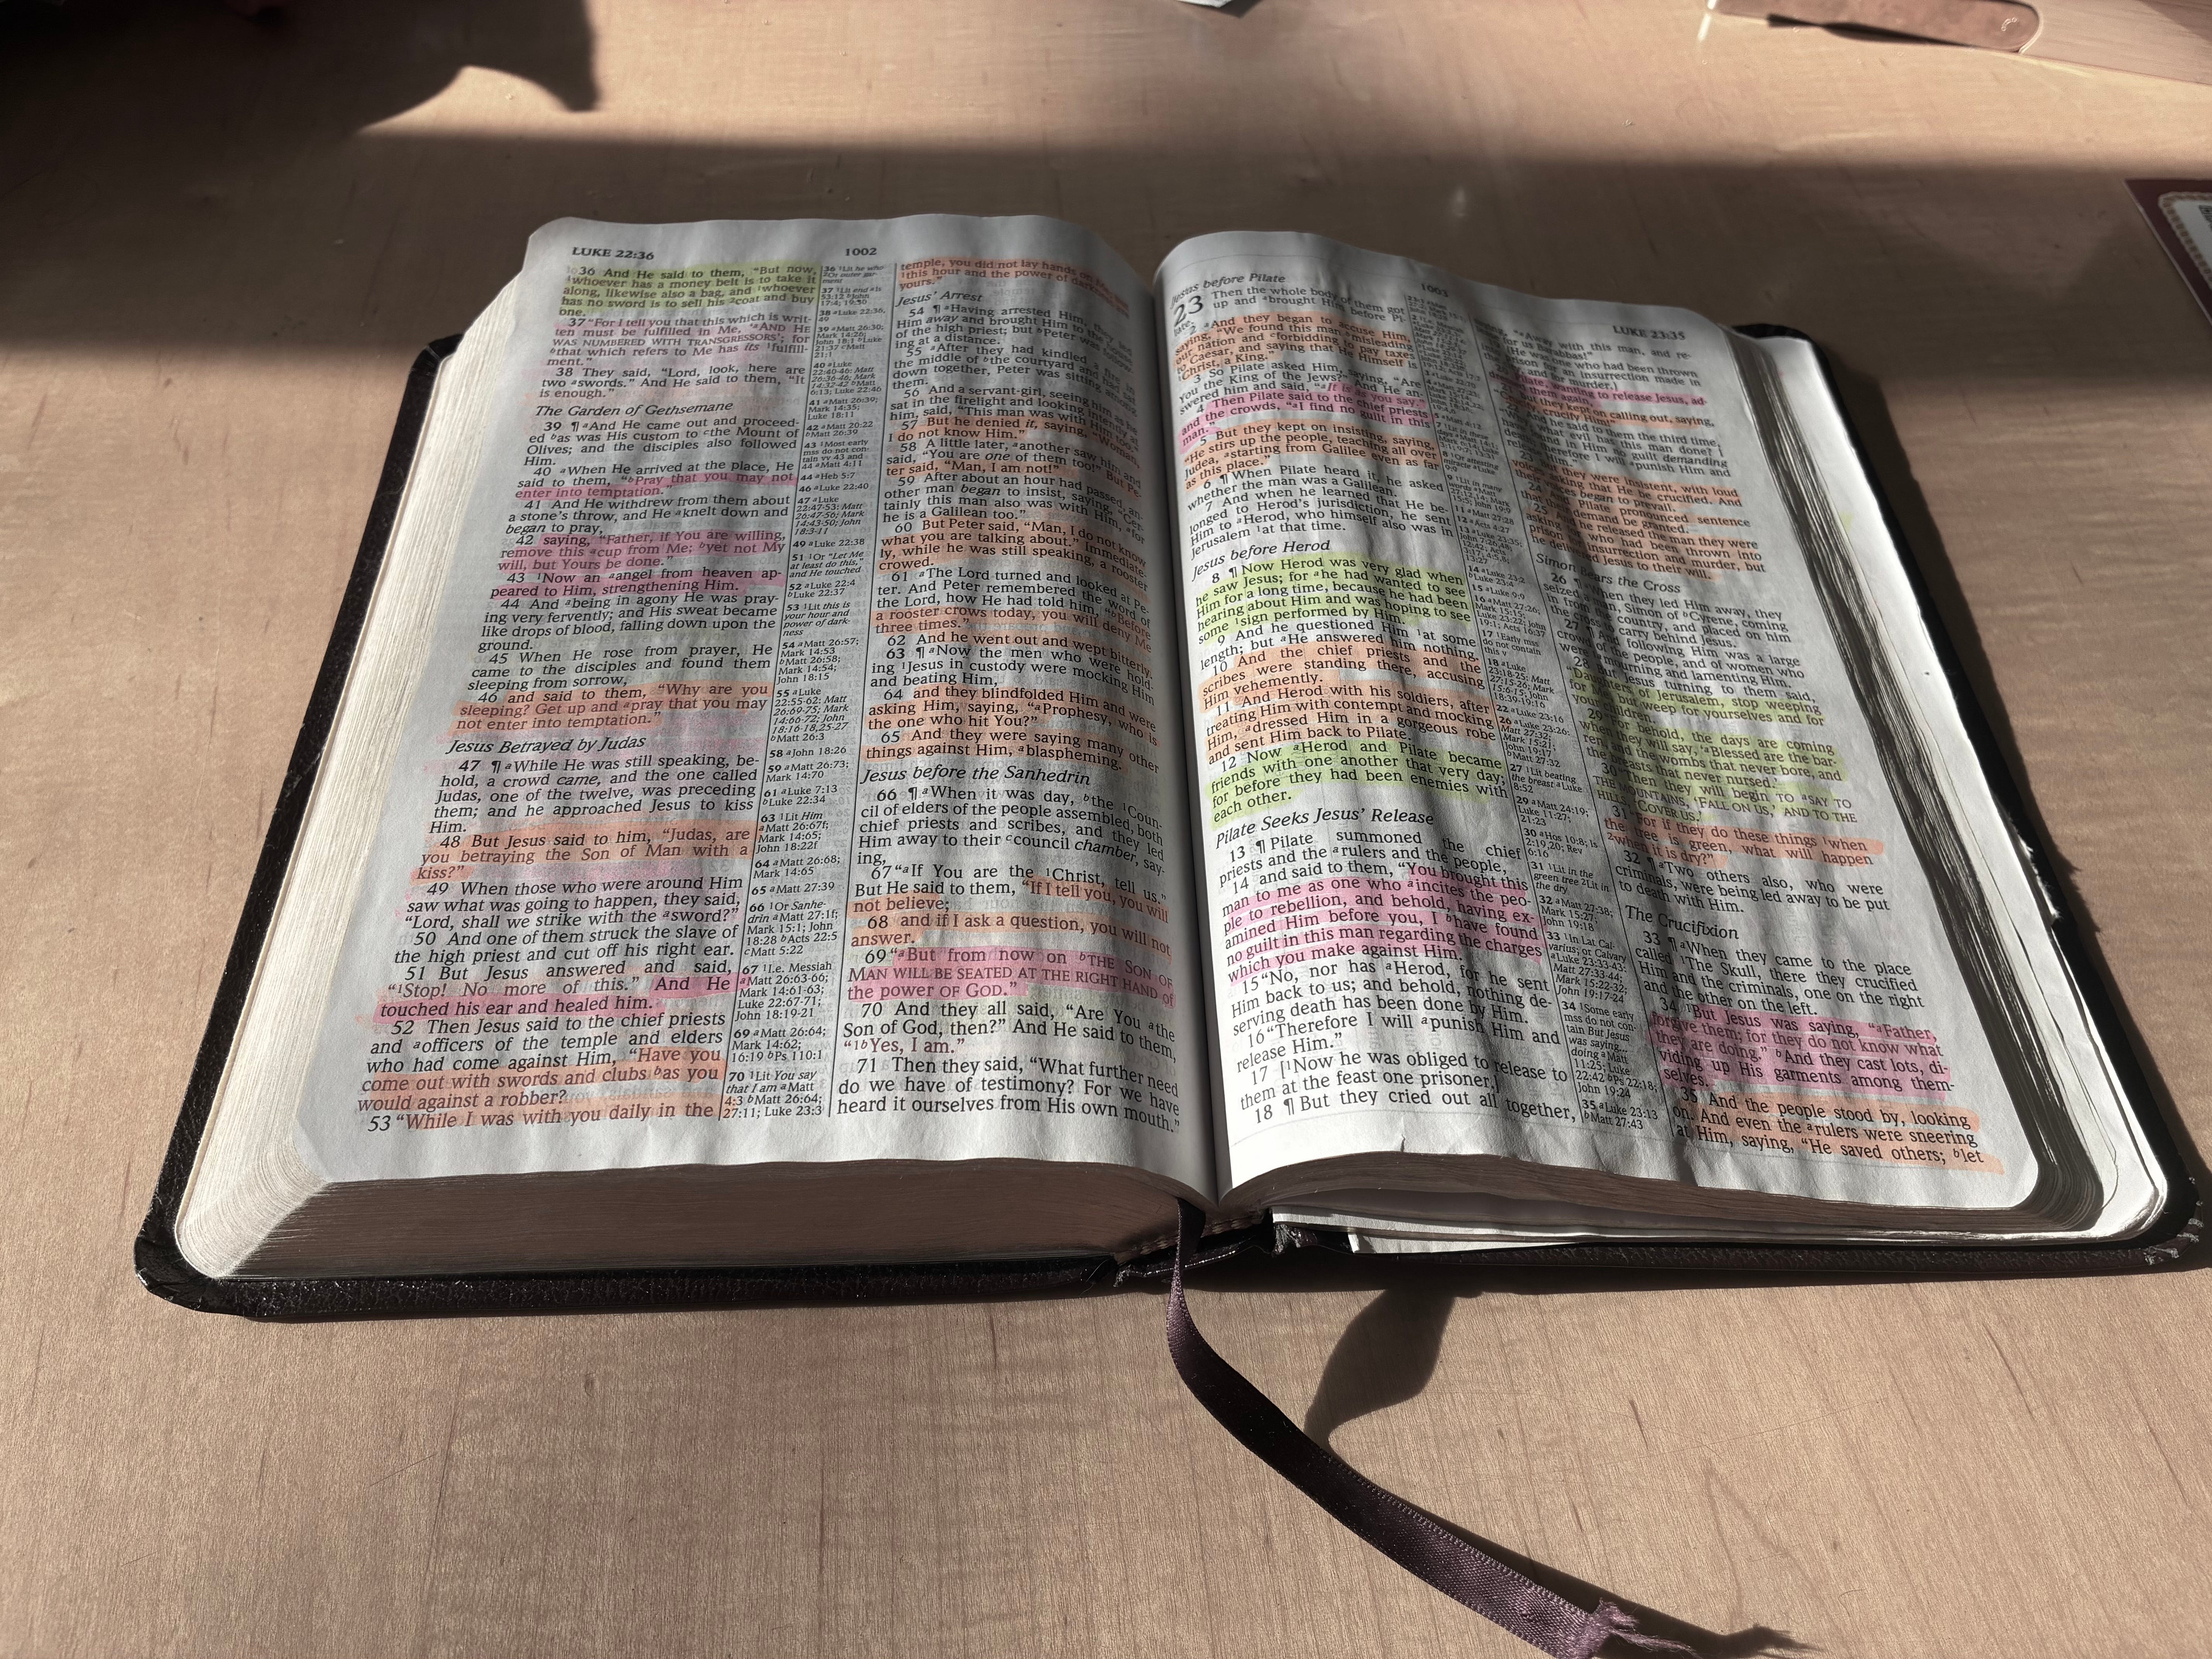 LUKE 22:36
1002
36 And He said to them, "But now,
¹whoever has a money belt is to take it
along, likewise also a bag, and ¹whoever
has no sword is to sell his ²coat and buy
one.
37 "For I tell you that this which is writ-
ten must be fulfilled in Me, 'ᵃAND HE
WAS NUMBERED WITH TRANSGRESSORS'; for
ᵇthat which refers to Me has its ¹fulfill-
ment."
38 They said, "Lord, look, here are
two ᵃswords." And He said to them, "It
is enough."
The Garden of Gethsemane
39 ¶ ᵃAnd He came out and proceed-
ed ᵇas was His custom to ᶜthe Mount of
Olives; and the disciples also followed
Him.
40 ᵃWhen He arrived at the place, He
said to them, "ᵇPray that you may not
enter into temptation."
41 And He withdrew from them about
a stone's throw, and He ᵃknelt down and
began to pray,
42 saying, "Father, if You are willing,
remove this ᵃcup from Me; ᵇyet not My
will, but Yours be done."
43 ¹Now an ᵃangel from heaven ap-
peared to Him, strengthening Him.
44 And ᵃbeing in agony He was pray-
ing very fervently; and His sweat became
like drops of blood, falling down upon the
ground.
45 When He rose from prayer, He
came to the disciples and found them
sleeping from sorrow,
46 and said to them, "Why are you
sleeping? Get up and ᵃpray that you may
not enter into temptation."
Jesus Betrayed by Judas
47 ¶ ᵃWhile He was still speaking, be-
hold, a crowd came, and the one called
Judas, one of the twelve, was preceding
them; and he approached Jesus to kiss
Him.
48 But Jesus said to him, "Judas, are
you betraying the Son of Man with a
kiss?"
49 When those who were around Him
saw what was going to happen, they said,
"Lord, shall we strike with the ᵃsword?"
50 And one of them struck the slave of
the high priest and cut off his right ear.
51 But Jesus answered and said,
"¹Stop! No more of this." And He
touched his ear and healed him.
52 Then Jesus said to the chief priests
and ᵃofficers of the temple and elders
who had come against Him, "Have you
come out with swords and clubs ᵇas you
would against a robber?
53 "While I was with you daily in the
36 ¹Lit he who
²Or outer gar-
ment
37 ¹Lit end ᵃIs
53:12 ᵇJohn
17:4; 19:30
38 ᵃLuke 22:36,
49
39 ᵃMatt 26:30;
Mark 14:26;
John 18:1 ᵇLuke
21:37 ᶜMatt
21:1
40 ᵃLuke
22:40-46: Matt
26:36-46; Mark
14:32-42 ᵇMatt
6:13; Luke 22:46
41 ᵃMatt 26:39;
Mark 14:35;
Luke 18:11
42 ᵃMatt 20:22
ᵇMatt 26:39
43 ¹Most early
mss do not con-
tain vv 43 and
44 ᵃMatt 4:11
44 ᵃHeb 5:7
46 ᵃLuke 22:40
47 ᵃLuke
22:47-53: Matt
26:47-56; Mark
14:43-50; John
18:3-11
49 ᵃLuke 22:38
51 ¹Or "Let Me
at least do this,"
and He touched
52 ᵃLuke 22:4
ᵇLuke 22:37
53 ¹Lit this is
your hour and
power of dark-
ness
54 ᵃMatt 26:57;
Mark 14:53
ᵇMatt 26:58;
Mark 14:54;
John 18:15
55 ᵃLuke
22:55-62: Matt
26:69-75; Mark
14:66-72; John
18:16-18,25-27
ᵇMatt 26:3
58 ᵃJohn 18:26
59 ᵃMatt 26:73;
Mark 14:70
61 ᵃLuke 7:13
ᵇLuke 22:34
63 ¹Lit Him
ᵃMatt 26:67f;
Mark 14:65;
John 18:22f
64 ᵃMatt 26:68;
Mark 14:65
65 ᵃMatt 27:39
66 ¹Or Sanhe-
drin ᵃMatt 27:1f;
Mark 15:1; John
18:28 ᵇActs 22:5
ᶜMatt 5:22
67 ¹I.e. Messiah
ᵃMatt 26:63-66;
Mark 14:61-63;
Luke 22:67-71;
John 18:19-21
69 ᵃMatt 26:64;
Mark 14:62;
16:19 ᵇPs 110:1
70 ¹Lit You say
that I am ᵃMatt
4:3 ᵇMatt 26:64;
27:11; Luke 23:3
temple, you did not lay hands on Me; but
¹this hour and the power of darkness are
yours."
Jesus' Arrest
54 ¶ ᵃHaving arrested Him, they led
Him away and brought Him to the house
of the high priest; but ᵇPeter was follow-
ing at a distance.
55 ᵃAfter they had kindled a fire in
the middle of ᵇthe courtyard and had sat
down together, Peter was sitting among
them.
56 And a servant-girl, seeing him as he
sat in the firelight and looking intently at
him, said, "This man was with Him too."
57 But he denied it, saying, "Woman,
I do not know Him."
58 A little later, ᵃanother saw him and
said, "You are one of them too!" But Pe-
ter said, "Man, I am not!"
59 After about an hour had passed, an-
other man began to insist, saying, "Cer-
tainly this man also was with Him, ᵃfor
he is a Galilean too."
60 But Peter said, "Man, I do not know
what you are talking about." Immediate-
ly, while he was still speaking, a rooster
crowed.
61 ᵃThe Lord turned and looked at Pe-
ter. And Peter remembered the word of
the Lord, how He had told him, "ᵇBefore
a rooster crows today, you will deny Me
three times."
62 And he went out and wept bitterly.
63 ¶ ᵃNow the men who were hold-
ing ¹Jesus in custody were mocking Him
and beating Him,
64 and they blindfolded Him and were
asking Him, saying, "ᵃProphesy, who is
the one who hit You?"
65 And they were saying many other
things against Him, ᵃblaspheming.
Jesus before the Sanhedrin
66 ¶ ᵃWhen it was day, ᵇthe ¹Coun-
cil of elders of the people assembled, both
chief priests and scribes, and they led
Him away to their ᶜcouncil chamber, say-
ing,
67 "ᵃIf You are the ¹Christ, tell us."
But He said to them, "If I tell you, you will
not believe;
68 and if I ask a question, you will not
answer.
69 "ᵃBut from now on ᵇTHE SON OF
MAN WILL BE SEATED AT THE RIGHT HAND of
the power OF GOD."
70 And they all said, "Are You ᵃthe
Son of God, then?" And He said to them,
"¹ᵇYes, I am."
71 Then they said, "What further need
do we have of testimony? For we have
heard it ourselves from His own mouth."
1003
LUKE 23:35
Jesus before Pilate
23 Then the whole body of them got
up and ᵃbrought Him before Pi-
late.
2 ᵃAnd they began to accuse Him,
saying, "We found this man ᵇmisleading
our nation and ᶜforbidding to pay taxes
to Caesar, and saying that He Himself is
¹Christ, a King."
3 So Pilate asked Him, saying, "Are
You the King of the Jews?" And He an-
swered him and said, "ᵃIt is as you say."
4 Then Pilate said to the chief priests
and the crowds, "ᵃI find no guilt in this
man."
5 But they kept on insisting, saying,
"He stirs up the people, teaching all over
Judea, ᵃstarting from Galilee even as far
as this place."
6 ¶ When Pilate heard it, he asked
whether the man was a Galilean.
7 And when he learned that He be-
longed to Herod's jurisdiction, he sent
Him to ᵃHerod, who himself also was in
Jerusalem ¹at that time.
Jesus before Herod
8 ¶ Now Herod was very glad when
he saw Jesus; for ᵃhe had wanted to see
Him for a long time, because he had been
hearing about Him and was hoping to see
some ¹sign performed by Him.
9 And he questioned Him ¹at some
length; but ᵃHe answered him nothing.
10 And the chief priests and the
scribes were standing there, accusing
Him vehemently.
11 And Herod with his soldiers, after
treating Him with contempt and mocking
Him, ᵃdressed Him in a gorgeous robe
and sent Him back to Pilate.
12 Now ᵃHerod and Pilate became
friends with one another that very day;
for before they had been enemies with
each other.
Pilate Seeks Jesus' Release
13 ¶ Pilate summoned the chief
priests and the ᵃrulers and the people,
14 and said to them, "You brought this
man to me as one who ᵃincites the peo-
ple to rebellion, and behold, having ex-
amined Him before you, I ᵇhave found
no guilt in this man regarding the charges
which you make against Him.
15 "No, nor has ᵃHerod, for he sent
Him back to us; and behold, nothing de-
serving death has been done by Him.
16 "Therefore I will ᵃpunish Him and
release Him."
17 [¹Now he was obliged to release to
them at the feast one prisoner.]
18 ¶ But they cried out all together,
14 ᵃLuke 23:2
ᵇLuke 23:4
15 ᵃLuke 9:9
16 ᵃMatt 27:26;
Mark 15:15;
Luke 23:22; John
19:1; Acts 16:37
17 ¹Early mss
do not contain
this v
18 ᵃLuke
23:18-25: Matt
27:15-26; Mark
15:6-15; John
18:39-19:16
22 ᵃLuke 23:16
26 ᵃLuke 23:26:
Matt 27:32;
Mark 15:21;
John 19:17
ᵇMatt 27:32
27 ¹Lit beating
the breast ᵃLuke
8:52
29 ᵃMatt 24:19;
Luke 11:27;
21:23
30 ᵃHos 10:8; Is
2:19,20; Rev
6:16
31 ¹Lit in the
green tree ²Lit in
the dry
32 ᵃMatt 27:38;
Mark 15:27;
John 19:18
33 ¹In Lat Cal-
varius; or Calvary
ᵃLuke 23:33-43:
Matt 27:33-44;
Mark 15:22-32;
John 19:17-24
34 ¹Some early
mss do not con-
tain But Jesus
was saying...
doing ᵃMatt
11:25; Luke
22:42 ᵇPs 22:18;
John 19:24
35 ᵃLuke 23:13
ᵇMatt 27:43
saying, "ᵃAway with this man, and re-
lease for us Barabbas!"
19 (He was one who had been thrown
into prison for an insurrection made in
the city, and for murder.)
20 Pilate, wanting to release Jesus, ad-
dressed them again,
21 but they kept on calling out, saying,
"Crucify, crucify Him!"
22 And he said to them the third time,
"Why, what evil has this man done? I
have found in Him no guilt demanding
death; therefore I will ᵃpunish Him and
23 But they were insistent, with loud
voices asking that He be crucified. And
their voices began to prevail.
24 And Pilate pronounced sentence
that their demand be granted.
25 And he released the man they were
asking for who had been thrown into
prison for insurrection and murder, but
he delivered Jesus to their will.
Simon Bears the Cross
26 ¶ ᵃWhen they led Him away, they
seized a man, Simon of ᵇCyrene, coming
in from the country, and placed on him
the cross to carry behind Jesus.
27 And following Him was a large
crowd of the people, and of women who
were ¹ᵃmourning and lamenting Him.
28 But Jesus turning to them said,
"Daughters of Jerusalem, stop weeping
for Me, but weep for yourselves and for
your children.
29 "For behold, the days are coming
when they will say, 'ᵃBlessed are the bar-
ren, and the wombs that never bore, and
the breasts that never nursed.'
30 "Then they will begin TO ᵃSAY TO
THE MOUNTAINS, 'FALL ON US,' AND TO THE
HILLS, 'COVER US.'
31 "For if they do these things ¹when
the tree is green, what will happen
²when it is dry?"
32 ¶ ᵃTwo others also, who were
criminals, were being led away to be put
to death with Him.
The Crucifixion
33 ¶ ᵃWhen they came to the place
called ¹The Skull, there they crucified
Him and the criminals, one on the right
and the other on the left.
34 ¹But Jesus was saying, "ᵃFather,
forgive them; for they do not know what
they are doing." ᵇAnd they cast lots, di-
viding up His garments among them-
selves.
35 And the people stood by, looking
on. And even the ᵃrulers were sneering
at Him, saying, "He saved others; ᵇlet